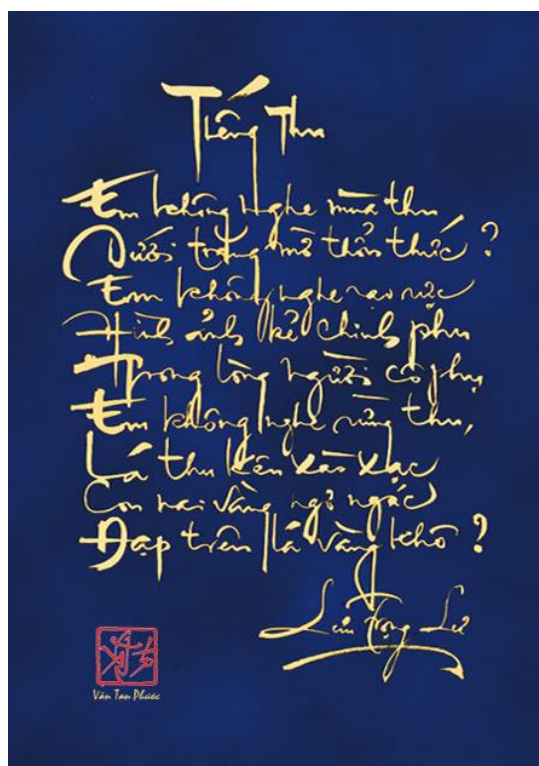 Tiếng Thu
Em không nghe mùa thu
Dưới trăng mờ thổn thức ?
Em không nghe rạo rực
Hình ảnh kẻ chinh phu
Trong lòng người cô phụ
Em không nghe rừng thu,
Lá thu kêu xào xạc
Con nai vàng ngơ ngác
Đạp trên lá vàng khô ?
Lưu Trọng Lư
Văn Tan Phước